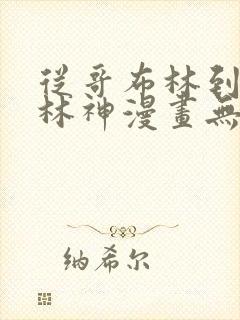 從哥布林到
林神漫畫無
纳希尔